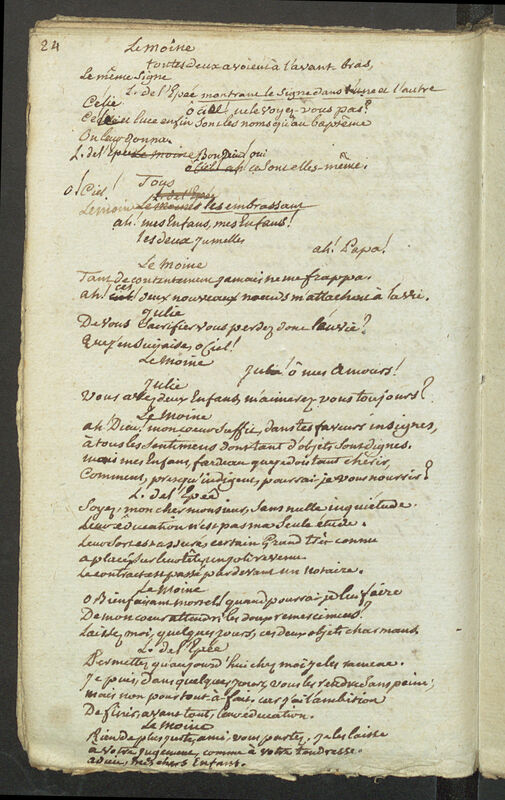 24
Le Moine
toutes deux avoient à l'avant bras,
Le même Signe
L. de l'Epée montrant le Signe dans l'une et l'autre
Célie
ô Ciel! ne le voyez-vous pas?
et Luce enfin sont les noms qu'au baptême
On leur donna.
L. de l'Epée Le Moine oui
ô Ciel! ah! ce sont elles-même.
Tous
O! Ciel!
L. de l'Epée
Le Moine les embrassant
ah! mes Enfans, mes Enfans!
les deux jumelles
ah! Papa!
Le Moine
Tant de contentement jamais ne me frappa.
ah! ces deux nouveaux noeuds m'attachent à la vie.
Julie
De vous Sacrifier vous perdez donc l'envie?
Que j'en suis aise, ô Ciel!
Le Moine
Julie! ô mes Amours!
Julie
Vous avez deux Enfans, m'aimerez vous toujours?
Le Moine
ah Dieu! mon coeur suffit, dans tes faveurs insignes,
à tous les Sentimens dont tant d'objets sont dignes.
mais mes Enfans, fardeau que je dois tant chérir,
Comment, presqu'indigent, pourrai-je vous nourrir?
L. de l'Epée
Soyez, mon cher monsieur, Sans nulle inquiétude.
Leur éducation n'est pas ma Seule étude.
Leur Sort est assuré, certain Grand très connu
a placé Sur leur tête un joli revenu
Le contract est passé pardevant un Notaire.
Le Moine
O Bienfaisant mortel! quand pourrai-je leur faire
De mon coeur attendri les doux remerciemens?
Laissez moi, quelques jours, ces deux objets charmans.
L. de l'Epée
Permettez qu'aujourd'hui chez moi je les ramene.
Je puis, dans quelques jours, vous les rendre Sans peine;
mais non pour tout à fait. car j'ai l'ambition
De finir, avant tout, leur éducation.
Le Moine
Rien de plus juste, ami. vous partez, je les laisse
à votre jugement, comme à votre tendresse.
adieu, mes chers Enfans.